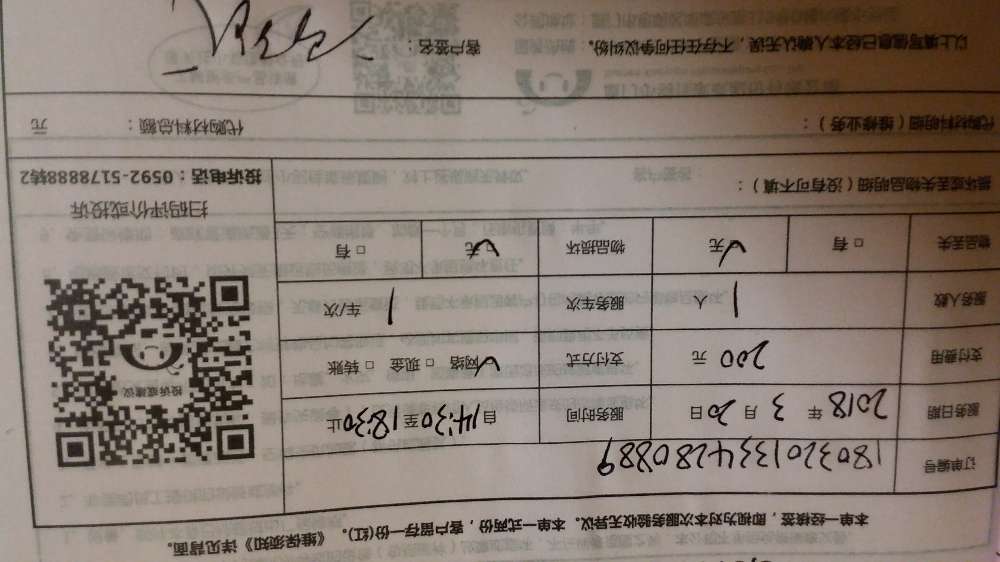 本单一经核签，即视为对本次服务验收无异议。本单一式两份，客户留存一份(红)。《维保须知》详见背面。
订单编号 1803201334280889
服务日期 2018 年 3 月 20 日 服务时间 自14:30至18:30止
支付费用 200 元 支付方式 网络 □ 现金 □ 转账
服务人数 1 人 服务车次 1 车/次
物品丢失 □ 有 无 物品损坏 无 □ 有
损坏或丢失物品明细（没有可不填）：
投诉或建议
扫码评价或投诉
投诉电话：0592-5178888转2
代购材料明细（维修业务）： 代购材料总额： 元
以上填写信息已经本人确认无误，不存在任何争议纠纷。 客户签名：